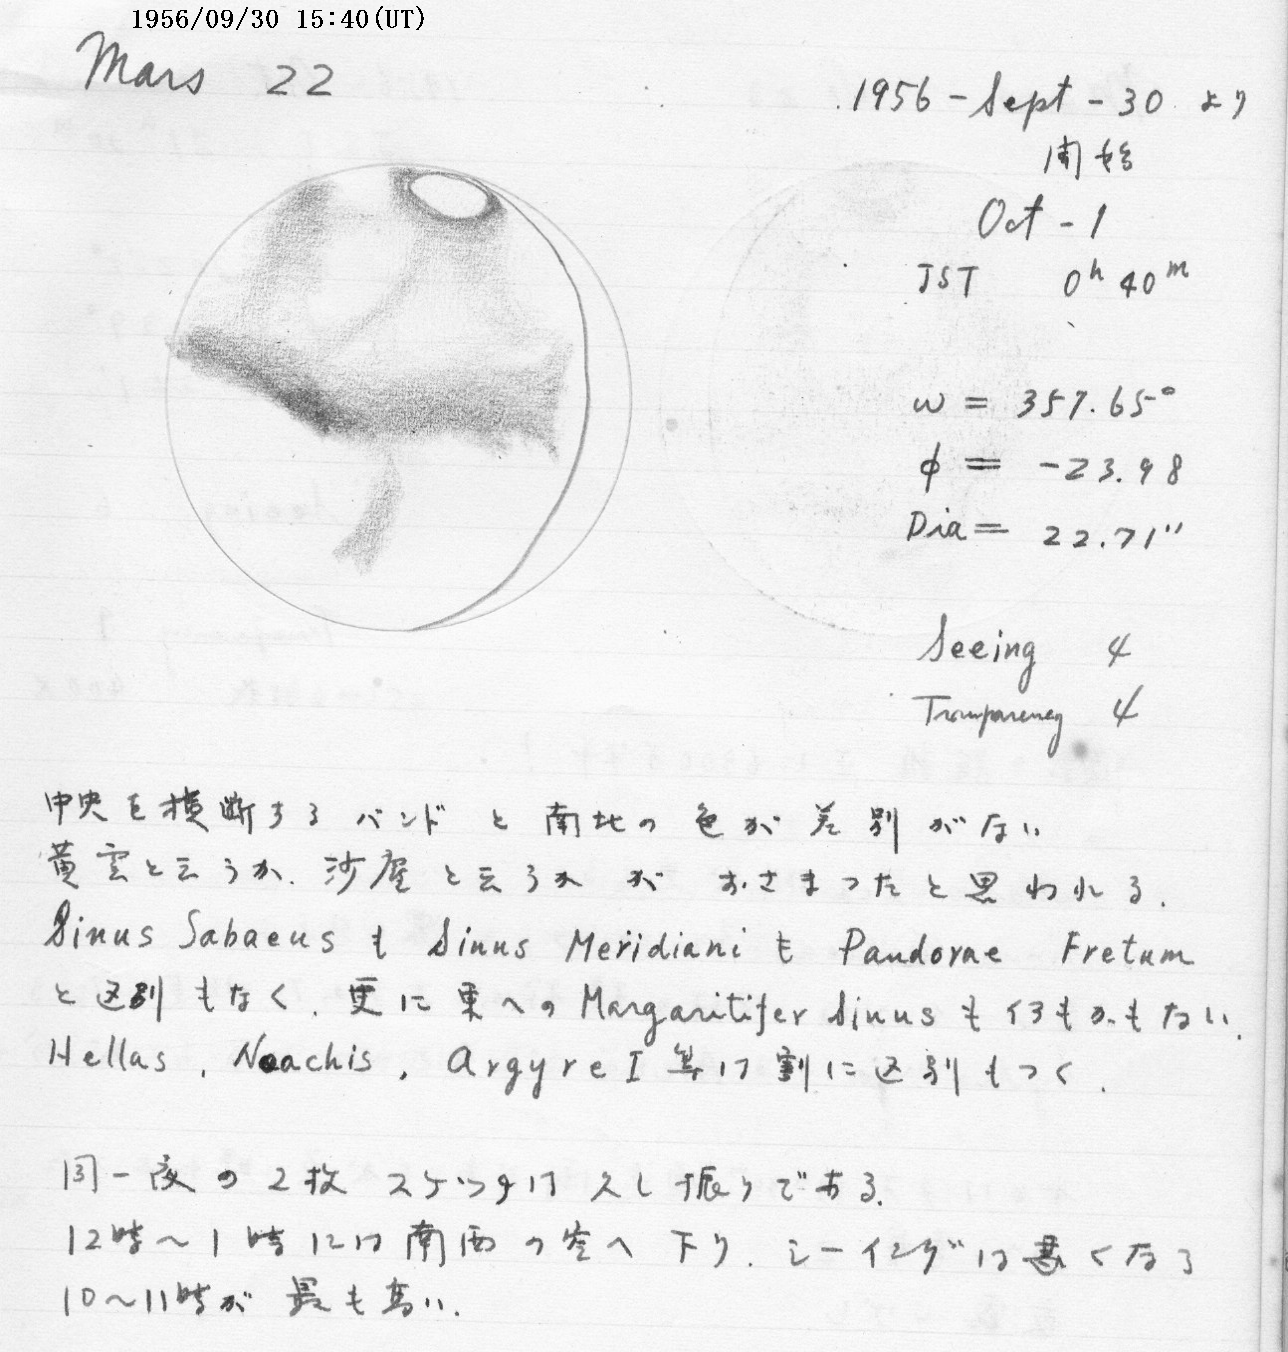 1956/09/30 15:40(UT)
Mars 22
1956-Sept-30 より
開始
Oct-1
JST 0h 40m
ω = 357.65°
φ = -23.98
Dia = 22.71"
Seeing 4
Transparency 4
中央を横断するバンドと南北の色が差別がない
黄雲と云うか、沙塵と云うか が おさまったと思われる.
Sinus Sabaeus も Sinus Meridiani も Pandorae Fretum
と区別もなく、更に東への Margaritifer Sinus も何もかもない.
Hellas, Noachis, Argyre I 等は割に区別もつく.
同一夜の2枚スケッチは久し振りである.
12時〜1時には南西の空へ下り、シーイングは悪くなる
10〜11時が最も高い.